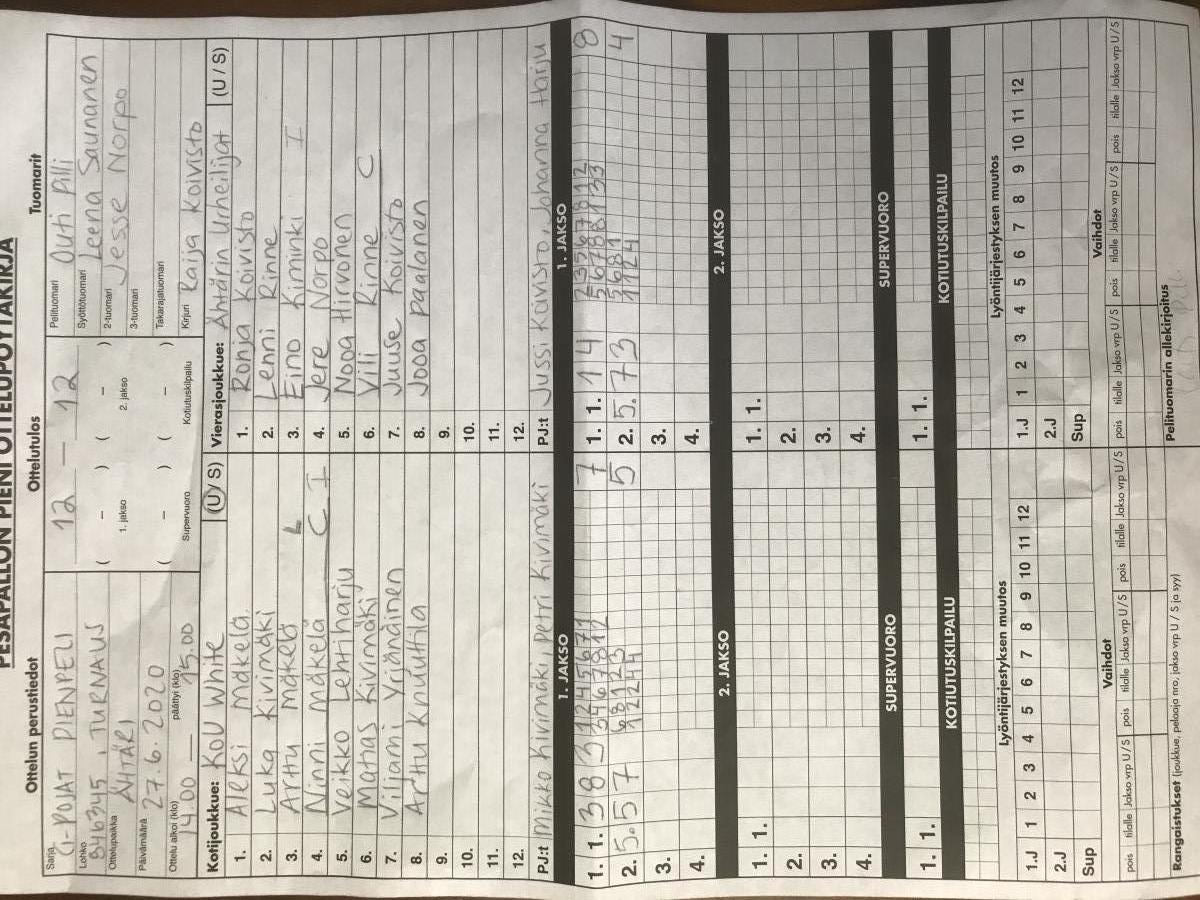 PESÄPALLON PIENI OTTELUPÖYTÄKIRJA
Ottelun perustiedot
Sarja
C-POJAT PIENPELI
Lohko
B46345, TURNAUS
Ottelupaikka
ÄHTÄRI
Päivämäärä
27.6.2020
Ottelu alkoi (klo) päättyi (klo)
14.00 — 15.00
Ottelutulos
12 — 12
( – ) ( – )
1. jakso 2. jakso
( – ) ( – )
Supervuoro Kotiutuskilpailu
Tuomarit
Pelituomari Outi Pilli
Syöttötuomari Leena Saunanen
2-tuomari Jesse Norpo
3-tuomari
Takarajatuomari
Kirjuri Raija Koivisto
Kotijoukkue: KoU White (U / S)
1. Aleksi Mäkelä
2. Luka Kivimäki
3. Arttu Mäkelä L
4. Ninni Mäkelä C I
5. Veikko Lehtiharju
6. Matias Kivimäki
7. Viljami Yrjänäinen
8. Arttu Knuutila
9.
10.
11.
12.
PJ:t Mikko Kivimäki, Petri Kivimäki
Vierasjoukkue: Ähtärin Urheilijat (U / S)
1. Ronja Koivisto
2. Lenni Rinne
3. Eino Kiminki I
4. Jere Norpo
5. Nooa Hirvonen
6. Vili Rinne C
7. Juuse Koivisto
8. Jooa Paalanen
9.
10.
11.
12.
PJ:t Jussi Koivisto, Johanna Harju
1. JAKSO
1. 1. 3 8 3 7
2. 5.57 5
3.
4.
1. JAKSO
1. 1. 14 8
2. 5.73 4
3.
4.
2. JAKSO
1. 1.
2.
3.
4.
2. JAKSO
1. 1.
2.
3.
4.
SUPERVUORO
1. 1.
SUPERVUORO
1. 1.
KOTIUTUSKILPAILU
KOTIUTUSKILPAILU
Lyöntijärjestyksen muutos
1.J 1 2 3 4 5 6 7 8 9 10 11 12
2.J
Sup
Lyöntijärjestyksen muutos
1.J 1 2 3 4 5 6 7 8 9 10 11 12
2.J
Sup
Vaihdot
pois tilalle Jakso vrp U/S pois tilalle Jakso vrp U/S pois tilalle Jakso vrp U/S
Vaihdot
pois tilalle Jakso vrp U/S pois tilalle Jakso vrp U/S pois tilalle Jakso vrp U/S
Rangaistukset (joukkue, pelaaja nro, jakso vrp U / S ja syy)
Pelituomarin allekirjoitus